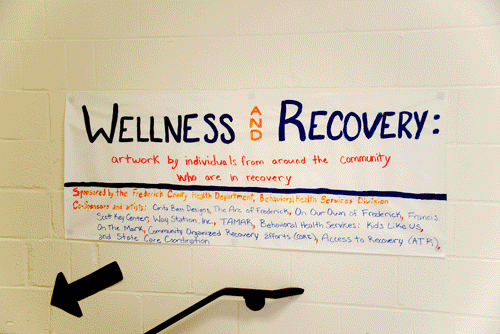 WELLNESS AND RECOVERY:
artwork by individuals from around the community
who are in recovery
Sponsored by the Frederick County Health Department, Behavioral Health Services Division
Co-Sponsors and artists: Designs, The Arc of Frederick, On Our Own of Frederick, Francis
Scott Key Center, Way Station, Inc., TAMAR, Behavioral Health Services: Kids Like Us,
On The Mark, Community Organized Recovery Efforts (CORE), Access to Recovery (ATR),
and State Care Coordination